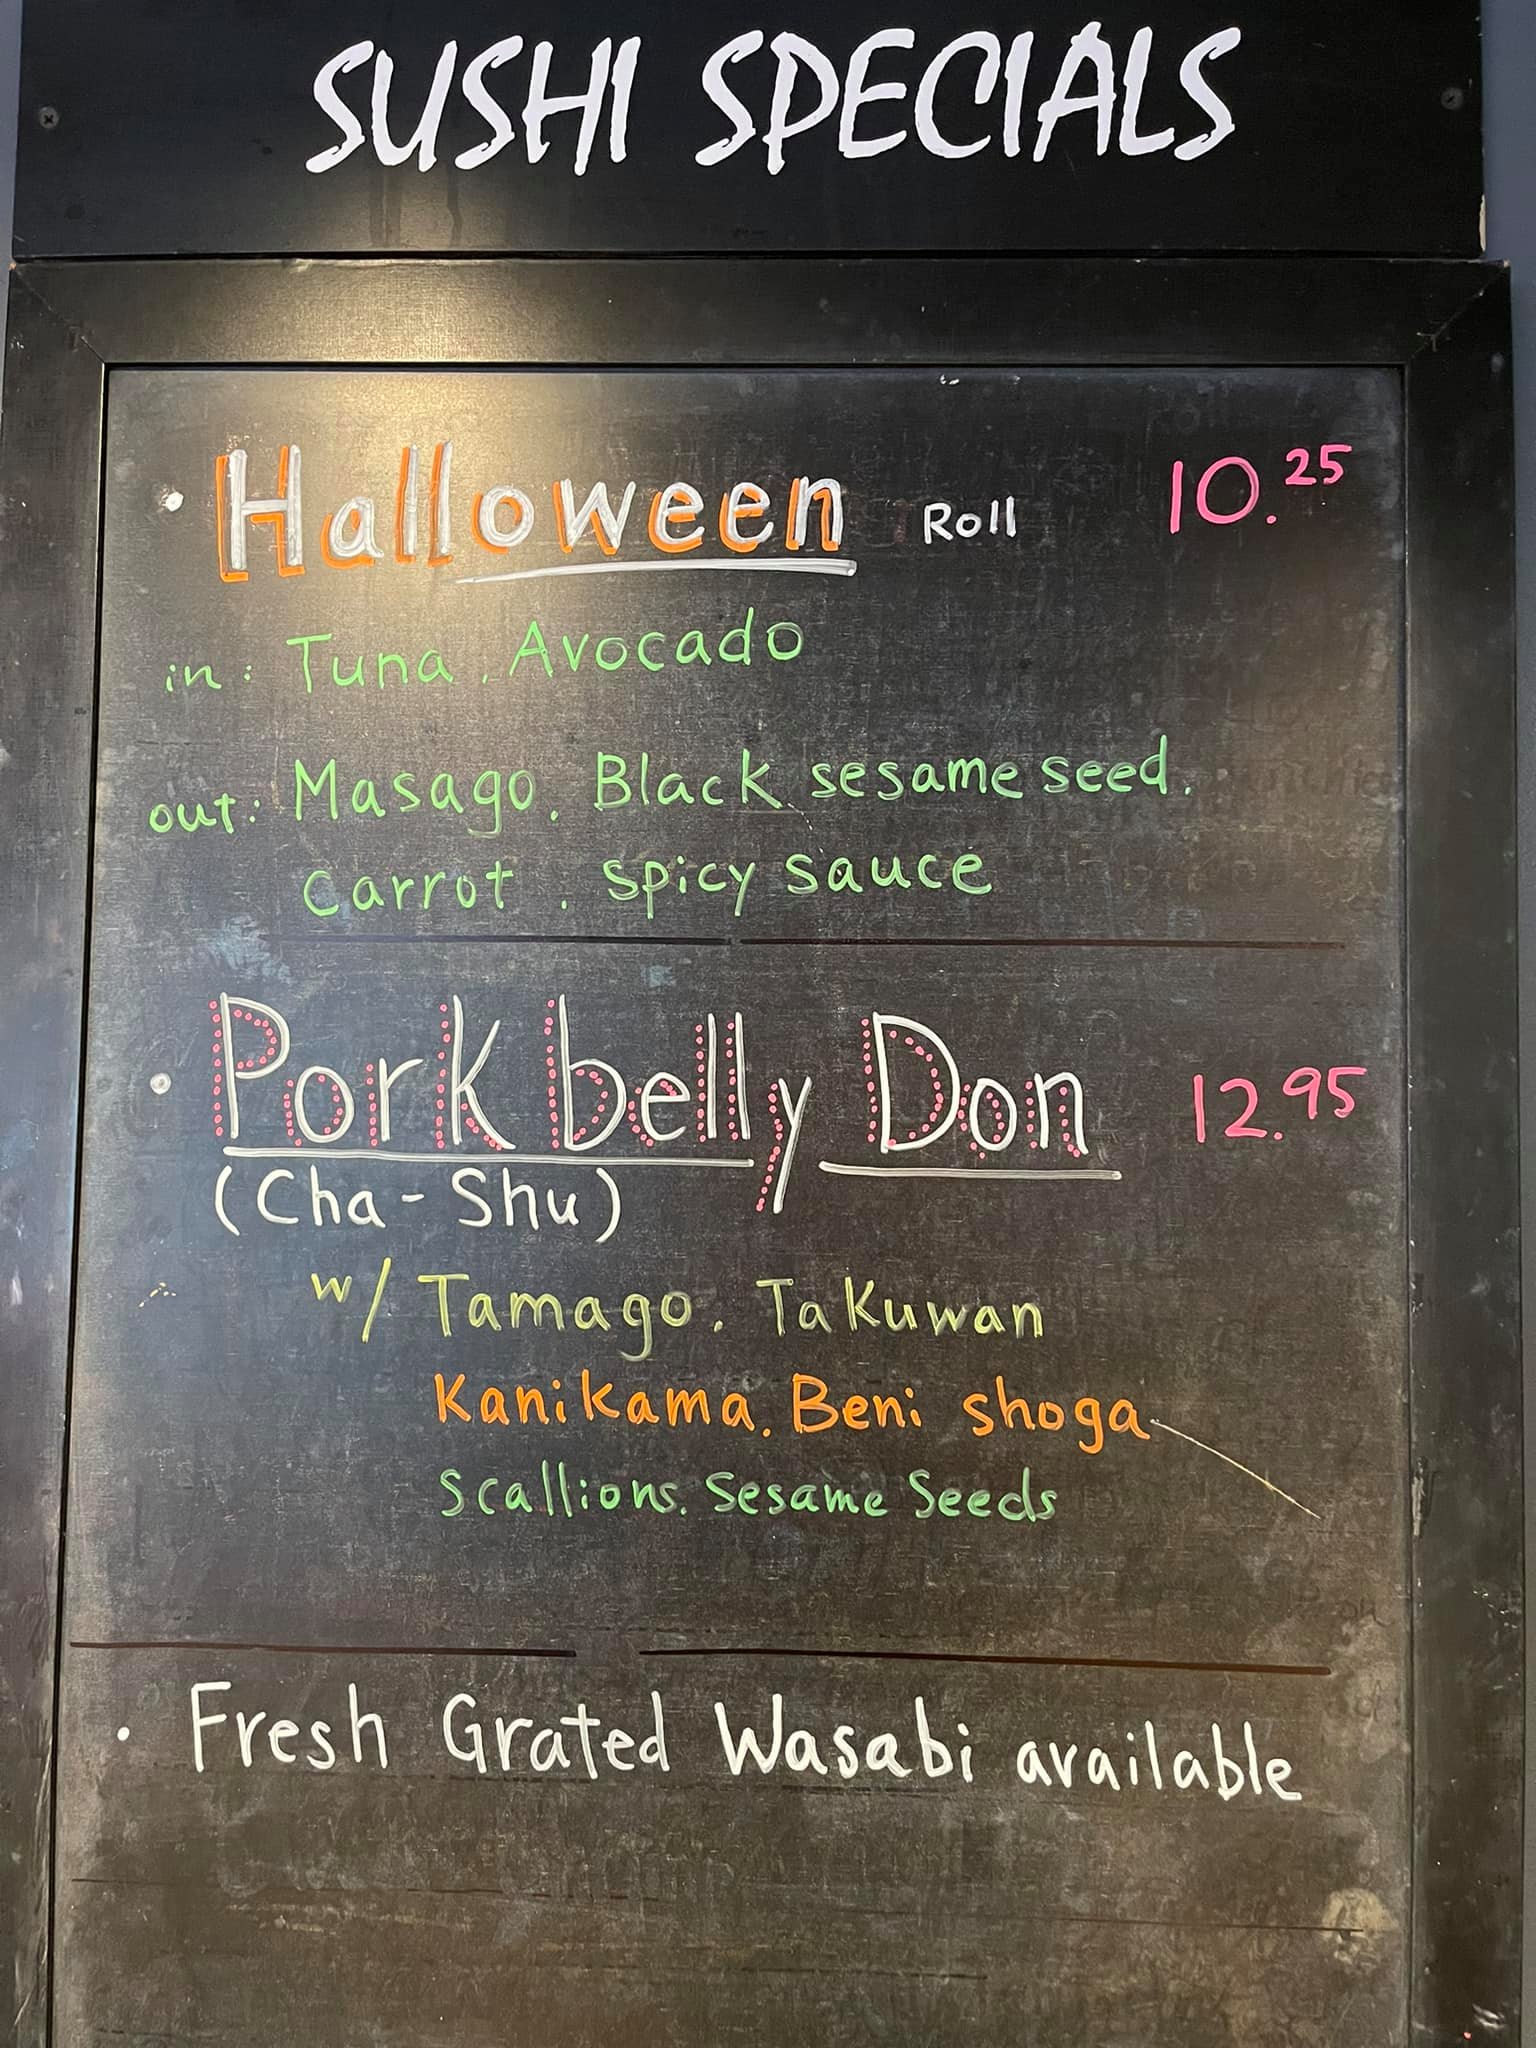 SUSHI SPECIALS
• Halloween Roll 10.25
in: Tuna. Avocado
out: Masago. Black sesame seed.
Carrot. spicy sauce
• Pork belly Don 12.95
(Cha-Shu)
w/ Tamago. Takuwan
Kanikama. Beni shoga
Scallions. Sesame Seeds
• Fresh Grated Wasabi available